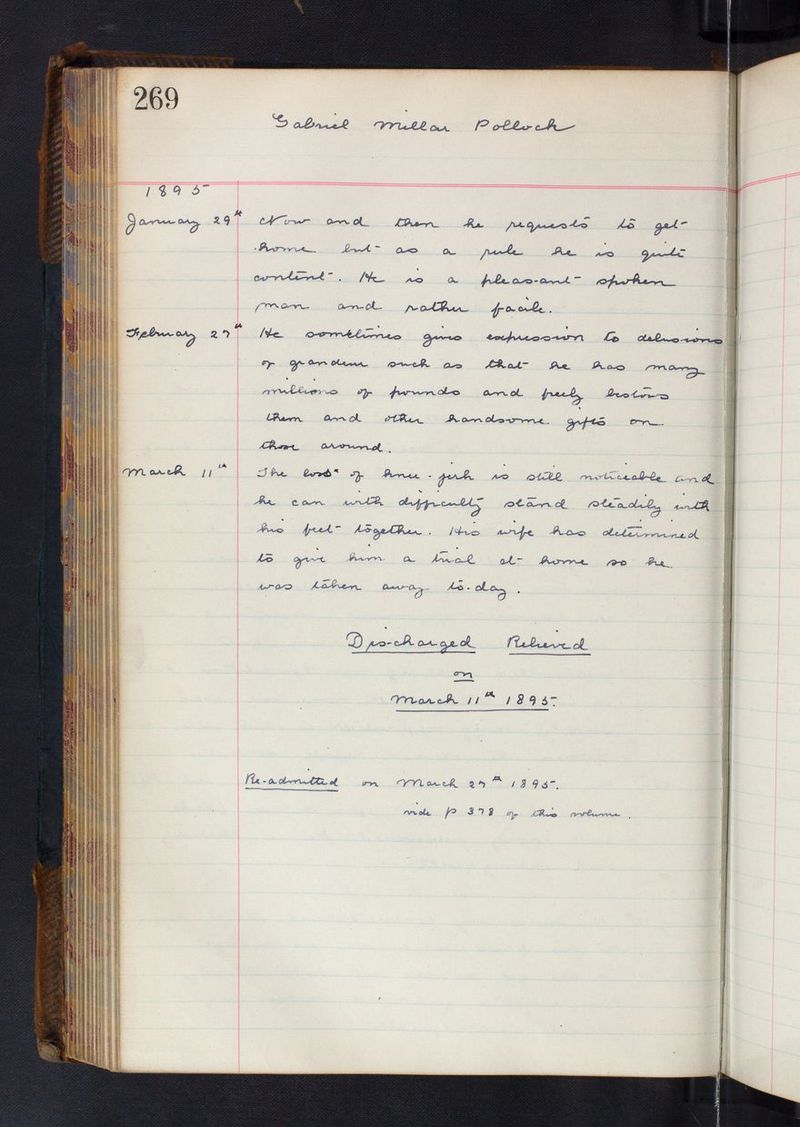 269
Gabriel Millar Pollock
1895
January 29th Now and then he requests to get
home but as a rule he is quite
content. He is a pleasant spoken
man and rather facile.
February 27th He sometimes gives expression to delusions
of grandeur such as that he has many
millions of pounds and freely bestows
them and other handsome gifts on
those around.
March 11th The loss of knee-jerk is still noticeable and
he can with difficulty stand steadily with
his feet together. His wife has determined
to give him a trial at home so he
was taken away to-day.
Discharged Relieved
on
March 11th 1895.
Re-admitted on March 27th 1895.
vide p 378 of this volume.